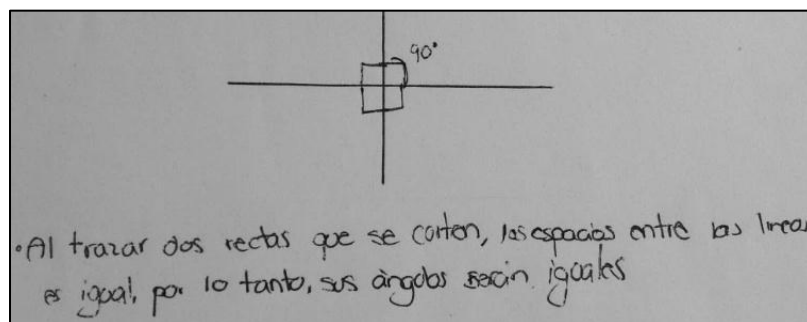 90°
• Al trazar dos rectas que se corten, los espacios entre las lineas
es igual, por lo tanto, sus ángulos serán iguales